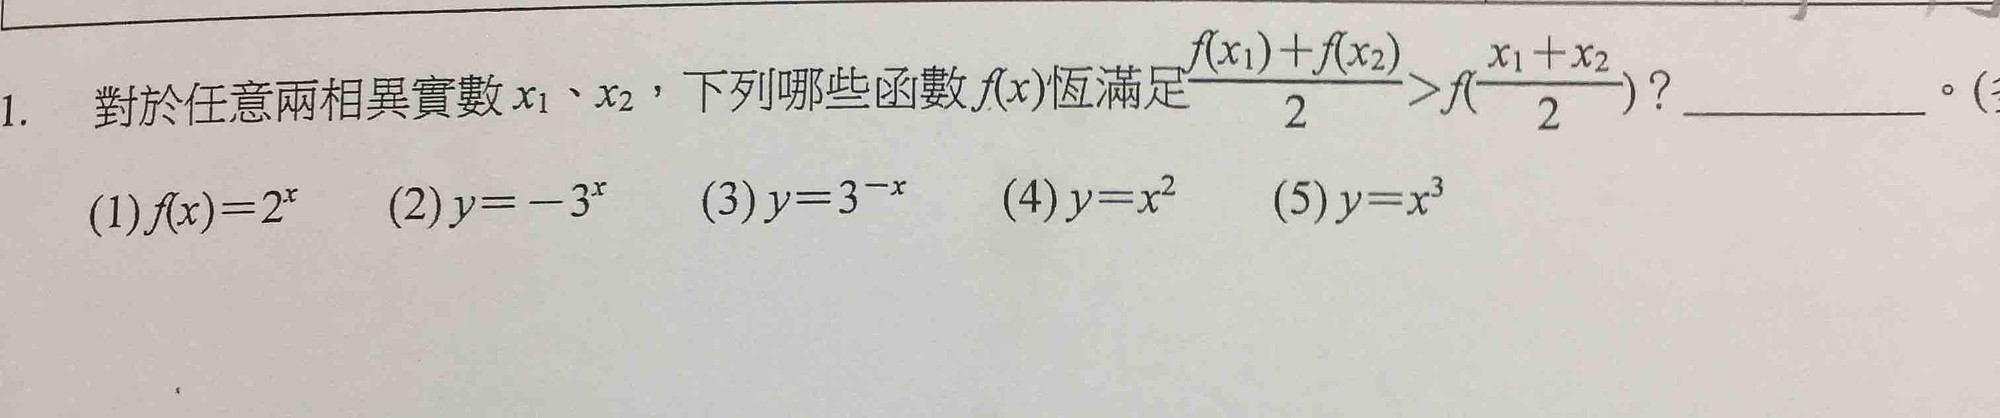 1. 對於任意兩相異實數 x₁、x₂，下列哪些函數 f(x)恆滿足 (f(x₁)+f(x₂))/2 > f((x₁+x₂)/2)？__________。(
(1) f(x)=2ˣ (2) y=−3ˣ (3) y=3⁻ˣ (4) y=x² (5) y=x³